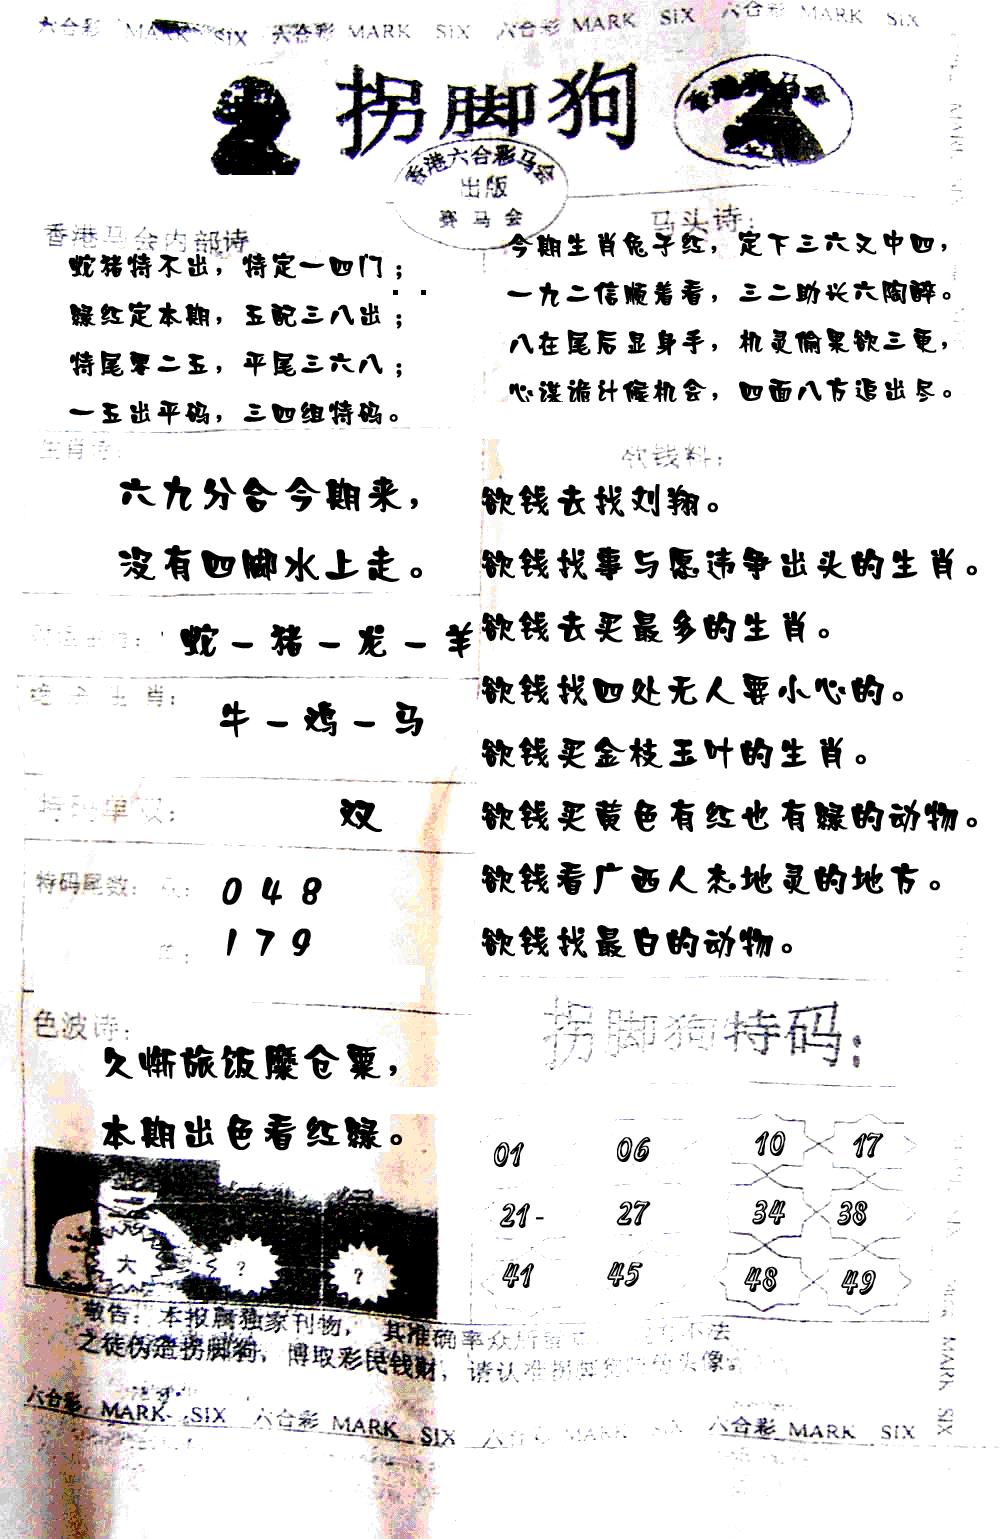 六合彩 MARK SIX 六合彩 MARK SIX 六合彩 MARK SIX 六合彩 MARK SIX
拐脚狗
香港六合彩马会
出版
赛马会
香港马会内部诗
蛇猪特不出，特定一四门；
绿红定本期，五配三八出；
特尾零二五，平尾三六八；
一五出平码，三四组特码。
马头诗：
今期生肖兔子红，定下三六又中四，
一九二信顺着看，三二助长六陶醉。
八在尾后显身手，机灵偷果欲三更，
心谋诡计候机会，四面八方追出尽。
生肖诗：
六九分合今期来，
没有四脚水上走。
蛇－猪－龙－羊
生肖：
牛－鸡－马
特码单双：
双
特码尾数：
0 4 8
1 7 9
色波诗：
久惭旅饭糜仓粟，
本期出色看红绿。
大
?
?
欲钱料：
欲钱去找刘翔。
欲钱找事与愿违争出头的生肖。
欲钱去买最多的生肖。
欲钱找四处无人要小心的。
欲钱买金枝玉叶的生肖。
欲钱买黄色有红也有绿的动物。
欲钱看广西人杰地灵的地方。
欲钱找最白的动物。
拐脚狗特码：
01 06 10 17
21- 27 34 38
41 45 48 49
敬告：本报属独家刊物，其准确率众所 不法
之徒伪造拐脚狗，博取彩民钱财，请认准拐脚 头像
六合彩 MARK SIX 六合彩 MARK SIX 六合彩 MARK SIX 六合彩 MARK SIX
MARK SIX